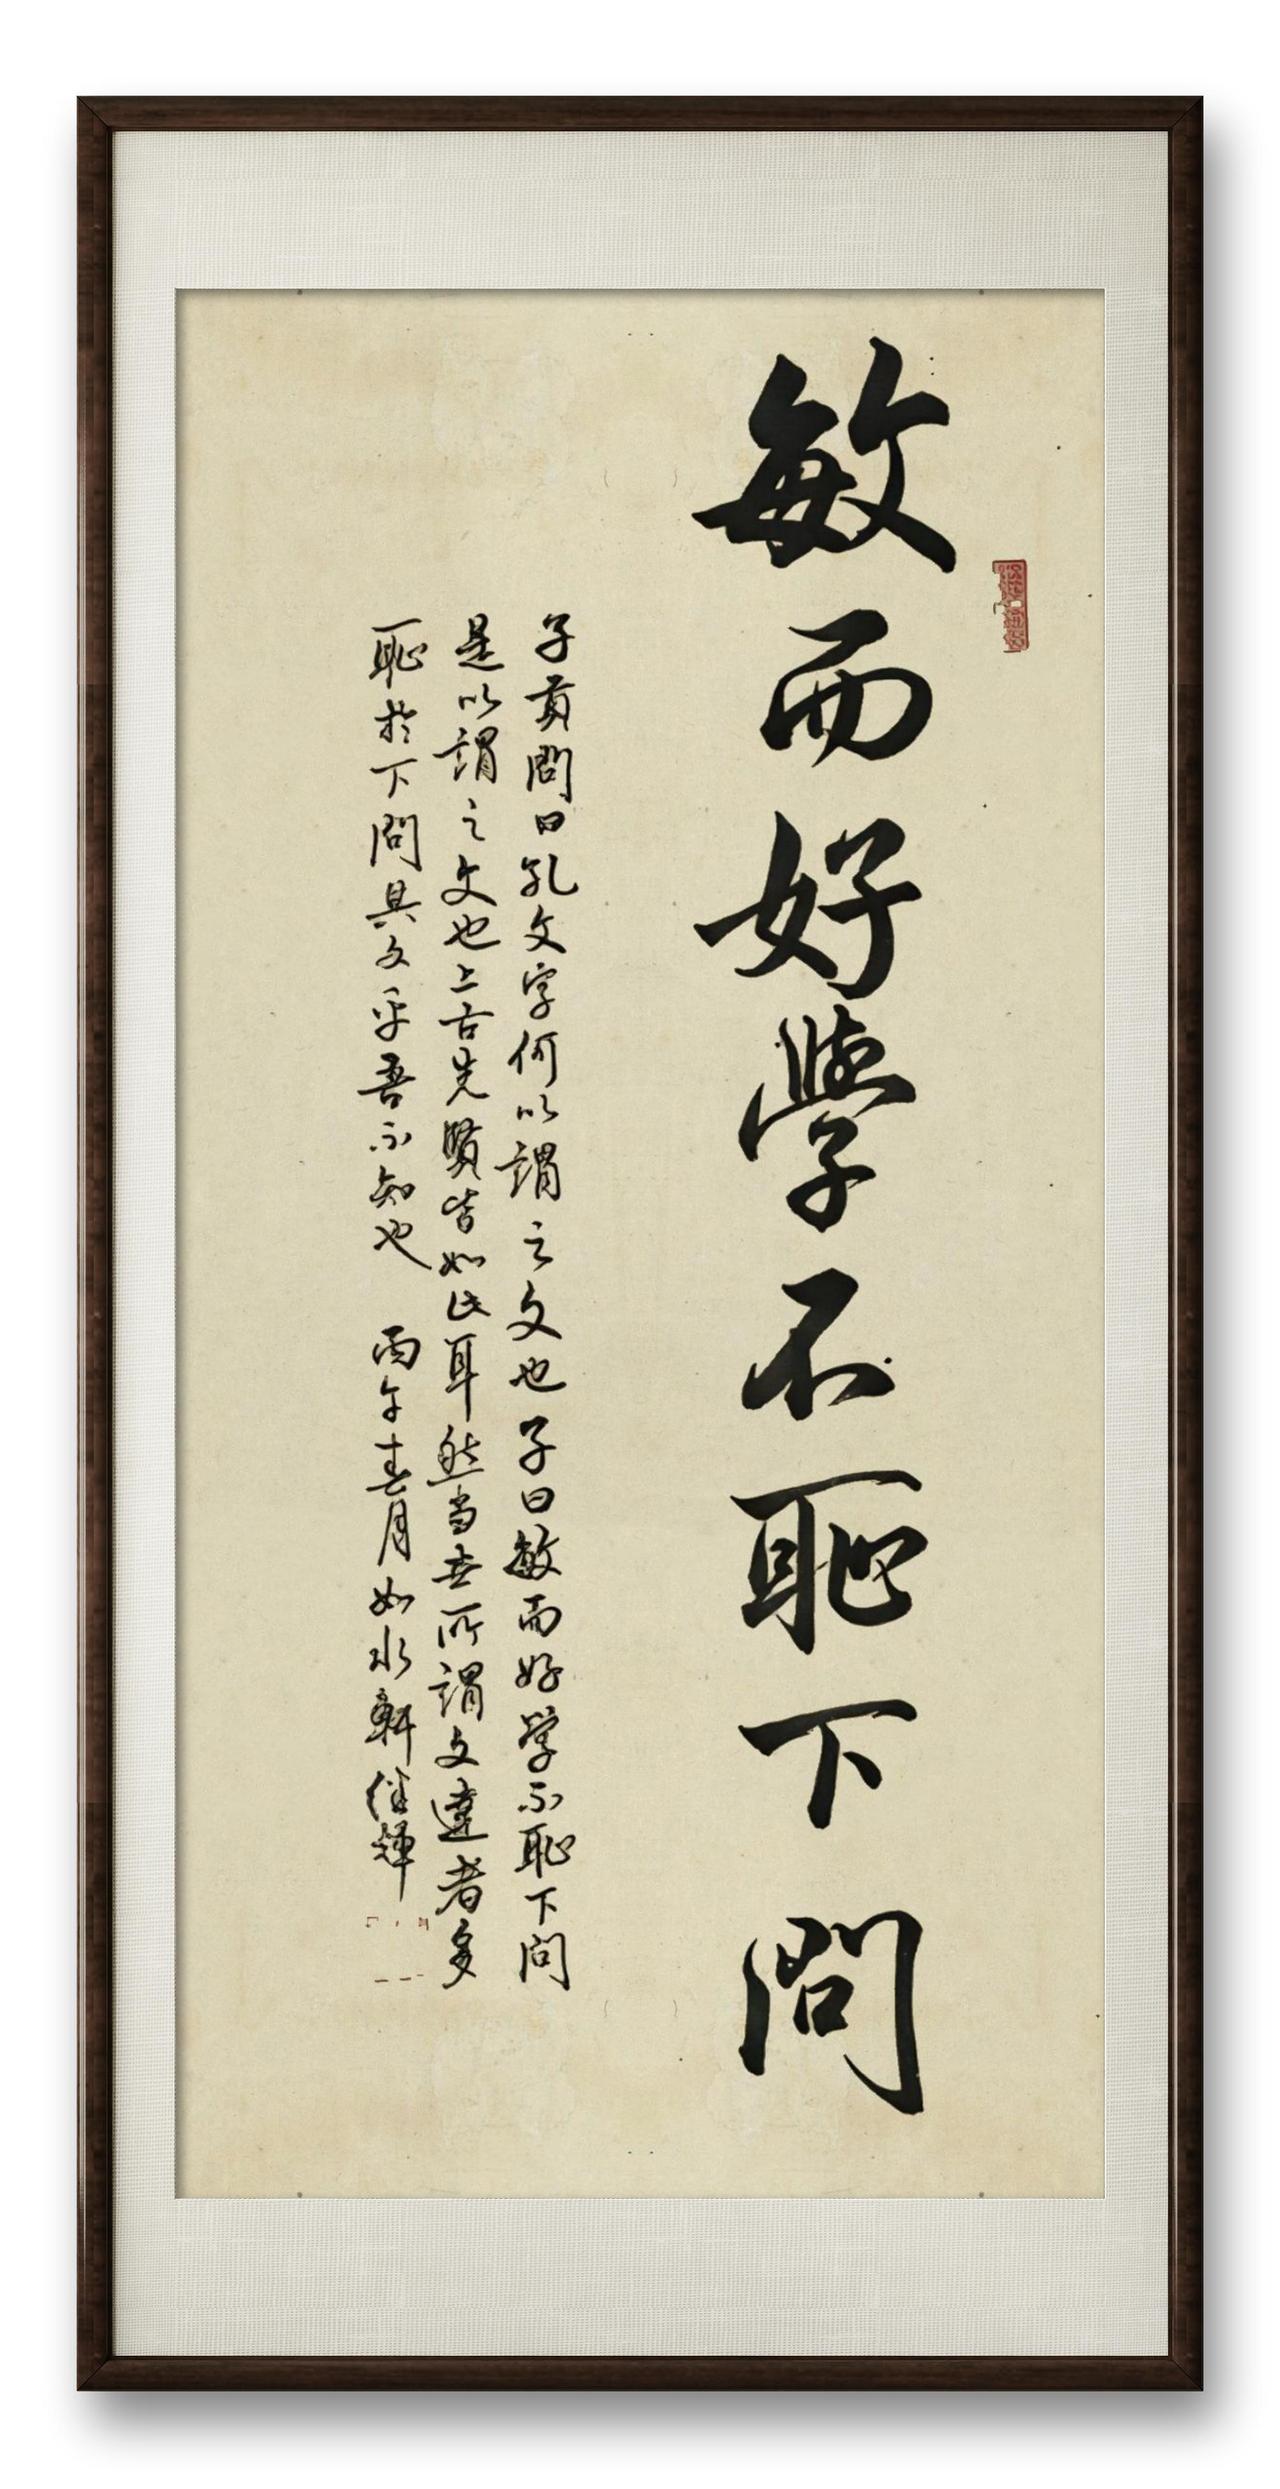 敏而好學不恥下問
子貢問曰孔文字何以謂之文也子曰敏而好学不恥下问
是以謂之文也上古先賢皆如此耳然当世所謂文達者多
恥於下問其文乎吾不知也 丙午春月如水軒 輝